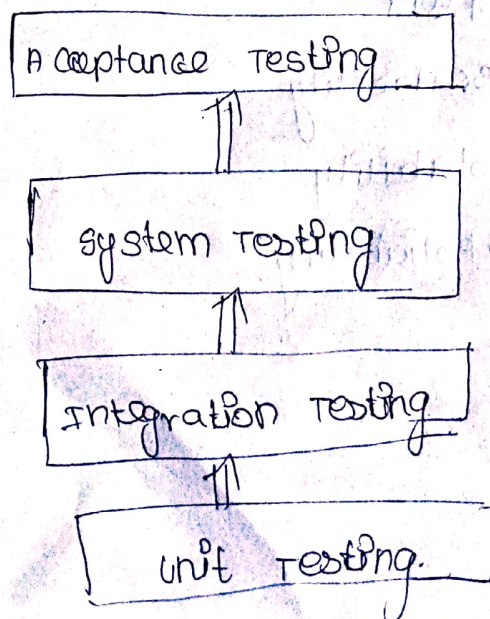 Acceptance Testing
System Testing
Integration Testing
Unit Testing.